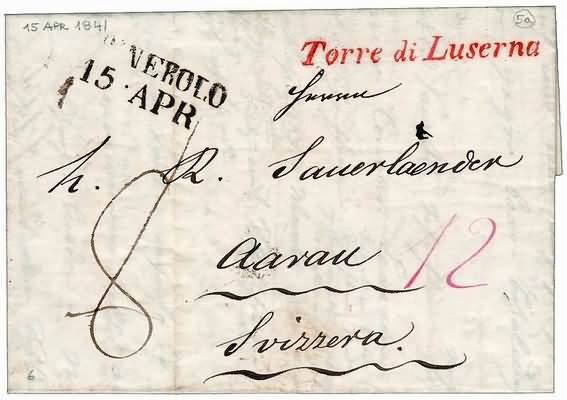 15 APR 1841
50
NEROLO
15 APR
Torre di Luserna
Herrn
H. R. Sauerlaender
8
Aarau
12
Svizzera.
6